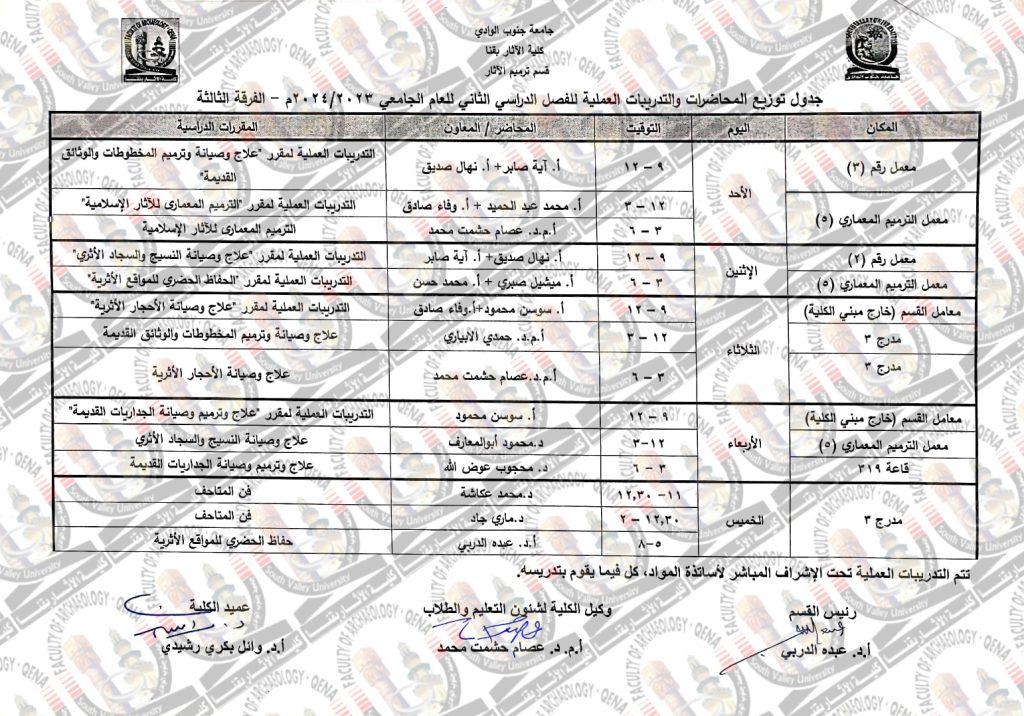 جامعة جنوب الوادي
كلية الآثار بقنا
قسم ترميم الآثار
جدول توزيع المحاضرات والتدريبات العملية للفصل الدراسي الثاني للعام الجامعي ٢٠٢٤/٢٠٢٣م – الفرقة الثالثة
المكان اليوم التوقيت المحاضر / المعاون المقررات الدراسية
معمل رقم (٣) الأحد ٩ – ١٢ أ. آية صابر+ أ. نهال صديق التدريبات العملية لمقرر "علاج وصيانة وترميم المخطوطات والوثائق
القديمة"
معمل الترميم المعماري (٥) ١٢ – ٣ أ. محمد عبد الحميد + أ. وفاء صادق التدريبات العملية لمقرر "الترميم المعمارى للآثار الإسلامية"
٣ – ٦ أ.م.د. عصام حشمت محمد الترميم المعمارى للآثار الإسلامية
معمل رقم (٢) الإثنين ٩ – ١٢ أ. نهال صديق+ أ. آية صابر التدريبات العملية لمقرر "علاج وصيانة النسيج والسجاد الأثري"
معمل الترميم المعماري (٥) ٣ – ٦ أ. ميشيل صبري + أ. محمد حسن التدريبات العملية لمقرر "الحفاظ الحضري للمواقع الأثرية"
معامل القسم (خارج مبني الكلية) الثلاثاء ٩ – ١٢ أ. سوسن محمود+أ.وفاء صادق التدريبات العملية لمقرر "علاج وصيانة الأحجار الأثرية"
مدرج ٣ ١٢ – ٣ أ.م.د. حمدي الأبياري علاج وصيانة وترميم المخطوطات والوثائق القديمة
مدرج ٣ ٣ – ٦ أ.م.د.عصام حشمت محمد علاج وصيانة الأحجار الأثرية
معامل القسم (خارج مبني الكلية) الأربعاء ٩ – ١٢ أ. سوسن محمود التدريبات العملية لمقرر "علاج وترميم وصيانة الجداريات القديمة"
معمل الترميم المعماري (٥) ١٢–٣ د.محمود أبوالمعارف علاج وصيانة النسيج والسجاد الأثري
قاعة ٣١٩ ٣ – ٦ د. محجوب عوض الله علاج وترميم وصيانة الجداريات القديمة
مدرج ٣ الخميس ١١– ١٢,٣٠ د.محمد عكاشة فن المتاحف
١٢,٣٠ – ٢ د.ماري جاد فن المتاحف
٥–٨ أ.د. عبده الدربي حفاظ الحضري للمواقع الأثرية
تتم التدريبات العملية تحت الإشراف المباشر لأساتذة المواد، كل فيما يقوم بتدريسه.
رئيس القسم وكيل الكلية لشئون التعليم والطلاب عميد الكلية
أ.د. عبده الدربي أ.م. د. عصام حشمت محمد أ.د. وائل بكري رشيدي
FACULTY OF ARCHAEOLOGY · QENA
South Valley University